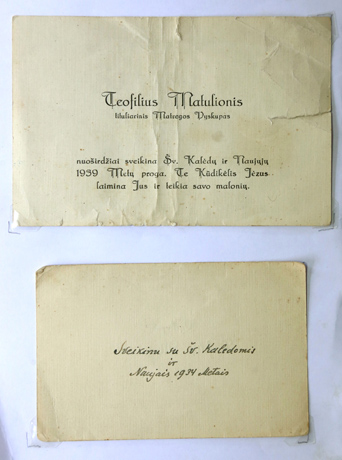 Teofilius Matulionis
tituliarinis Matregos Vyskupas
nuoširdžiai sveikina Šv. Kalėdų ir Naujųjų
1939 Metų proga. Te Kūdikėlis Jėzus
laimina Jus ir teikia savo malonių.
Sveikinu su Šv. Kaledomis
ir
Naujais 1934 Metais